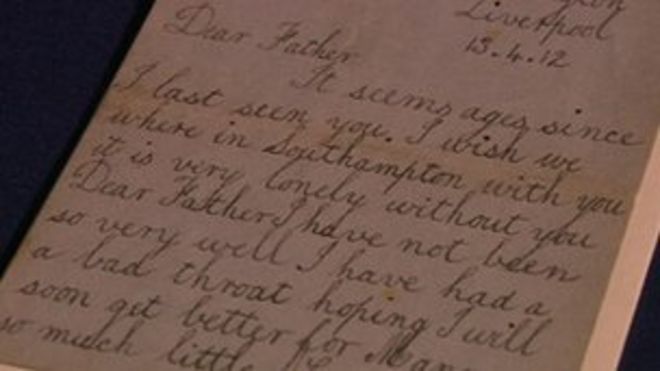 Liverpool
13.4.12
Dear Father
It seems ages since
I last seen you. I wish we
where in Southampton with you
it is very lonely without you
Dear Father I have not been
so very well I have had a
a bad throat hoping I will
soon get better for
so much little